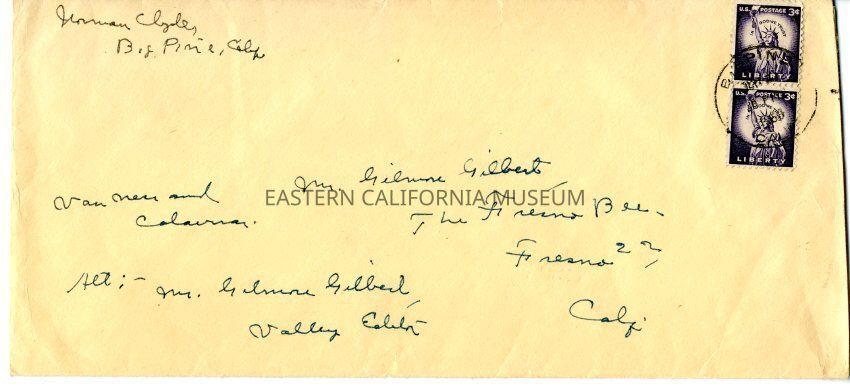 Norman Clyde,
Big Pine, Calif
U.S. POSTAGE 3¢
IN GOD WE TRUST
LIBERTY
U.S. POSTAGE 3¢
LIBERTY
Mr. Gilmore Gilbert,
EASTERN CALIFORNIA MUSEUM
Van Ness and
Calaveras.
The Fresno Bee.
Fresno 22,
Calif.
Att:- Mr. Gilmore Gilbert,
Valley Editor